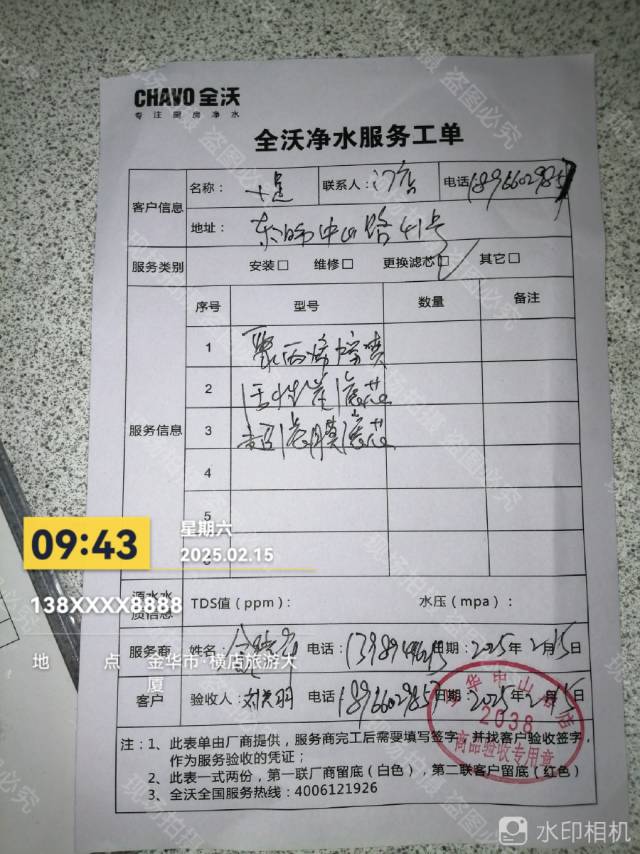 CHAVO 全沃
专注厨房净水
全沃净水服务工单
客户信息
名称：
联系人：门店
电话
地址： 中山路41号
服务类别
安装□ 维修□ 更换滤芯□ 其它□
服务信息
序号 型号 数量 备注
1
2 活性炭滤芯
3 超滤膜滤芯
4
5
09:43
星期六
2025.02.15
源水水质信息
TDS值（ppm）： 水压（mpa）：
138XXXX8888
服务商 姓名： 电话： 日期：2025年2月15日
地 点 金华市·横店旅游大厦
客户 验收人： 电话 日期：2025年2月15日
中山
2038
商品验收专用章
注：1、此表单由厂商提供，服务商完工后需要填写签字，并找客户验收签字，
作为服务验收的凭证；
2、此表一式两份，第一联厂商留底（白色），第二联客户留底（红色）
3、全沃全国服务热线：4006121926
水印相机
现场拍摄 盗图必究